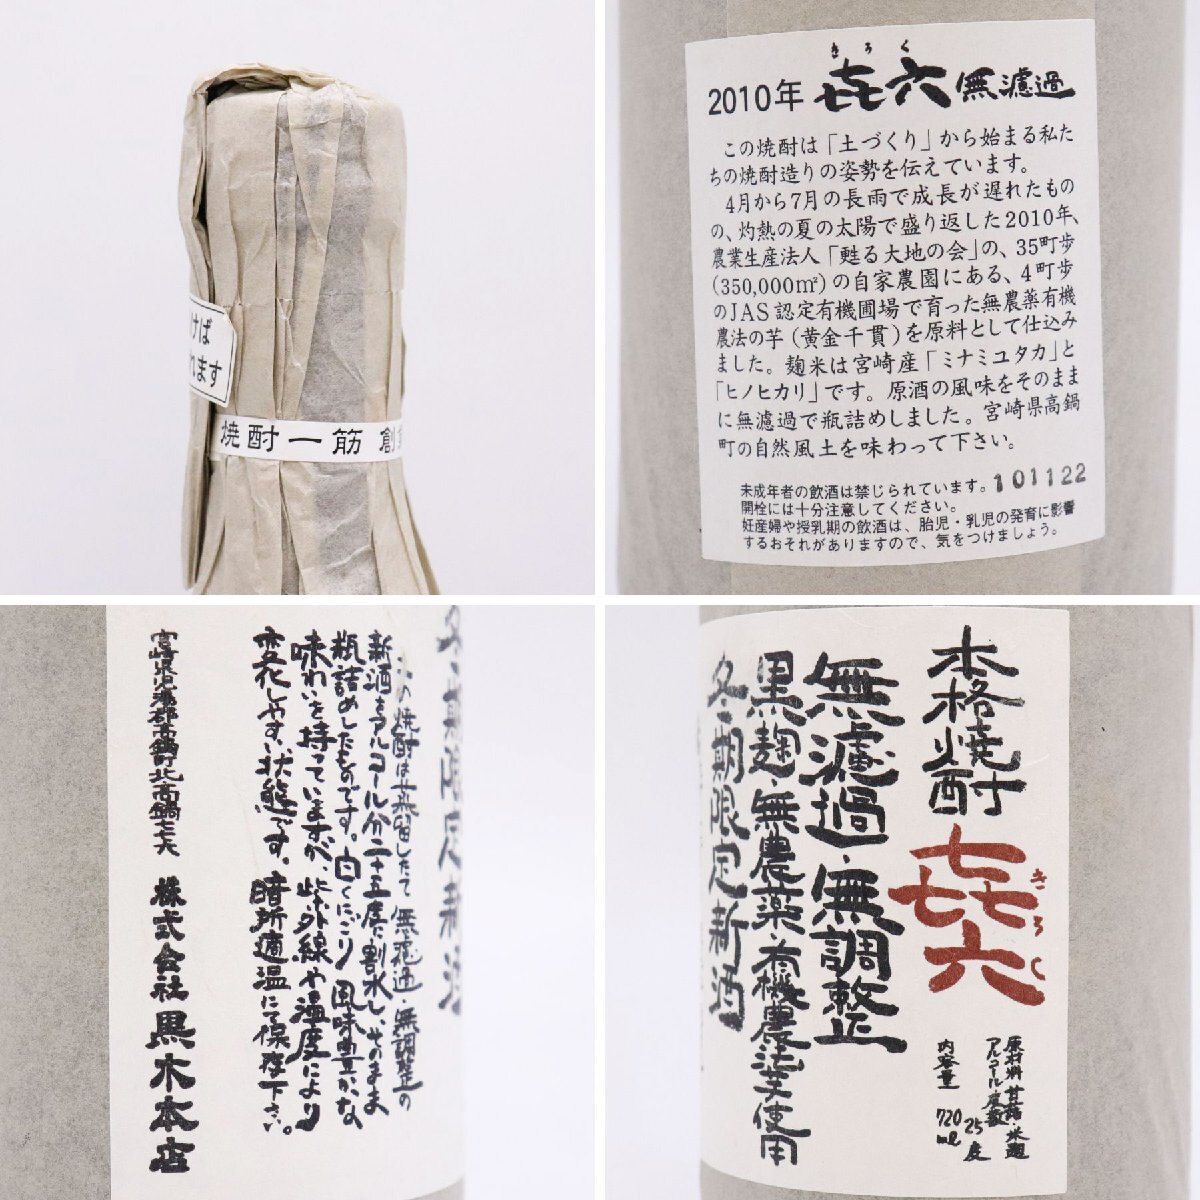 けば
れます
焼酎一筋 創
きろく
2010年 㐂六 無濾過
この焼酎は「土づくり」から始まる私た
ちの焼酎造りの姿勢を伝えています。
4月から7月の長雨で成長が遅れたもの
の、灼熱の夏の太陽で盛り返した2010年、
農業生産法人「甦る大地の会」の、35町歩
(350,000㎡)の自家農園にある、4町歩
のJAS認定有機圃場で育った無農薬有機
農法の芋(黄金千貫)を原料として仕込み
ました。麹米は宮崎産「ミナミユタカ」と
「ヒノヒカリ」です。原酒の風味をそのまま
に無濾過で瓶詰めしました。宮崎県高鍋
町の自然風土を味わって下さい。
未成年者の飲酒は禁じられています。101122
開栓には十分注意してください。
妊産婦や授乳期の飲酒は、胎児・乳児の発育に影響
するおそれがありますので、気をつけましょう。
冬期限定新酒
の焼酎は蒸留したて 無濾過・無調整の
新酒をアルコール分二十五度に割水し、そのまま
瓶詰めしたものです。白くにごり風味豊かな
味わいを持っていますが、紫外線や温度により
変化しやすい状態です。暗所適温にて保存下さい。
宮崎県児湯郡高鍋町北高鍋七七六 株式会社黒木本店
本格焼酎 㐂六
きろく
無濾過・無調整
黒麹・無農薬・有機農法芋使用
冬期限定新酒
原材料 甘藷・米麹
アルコール度数 25度
内容量 720ml